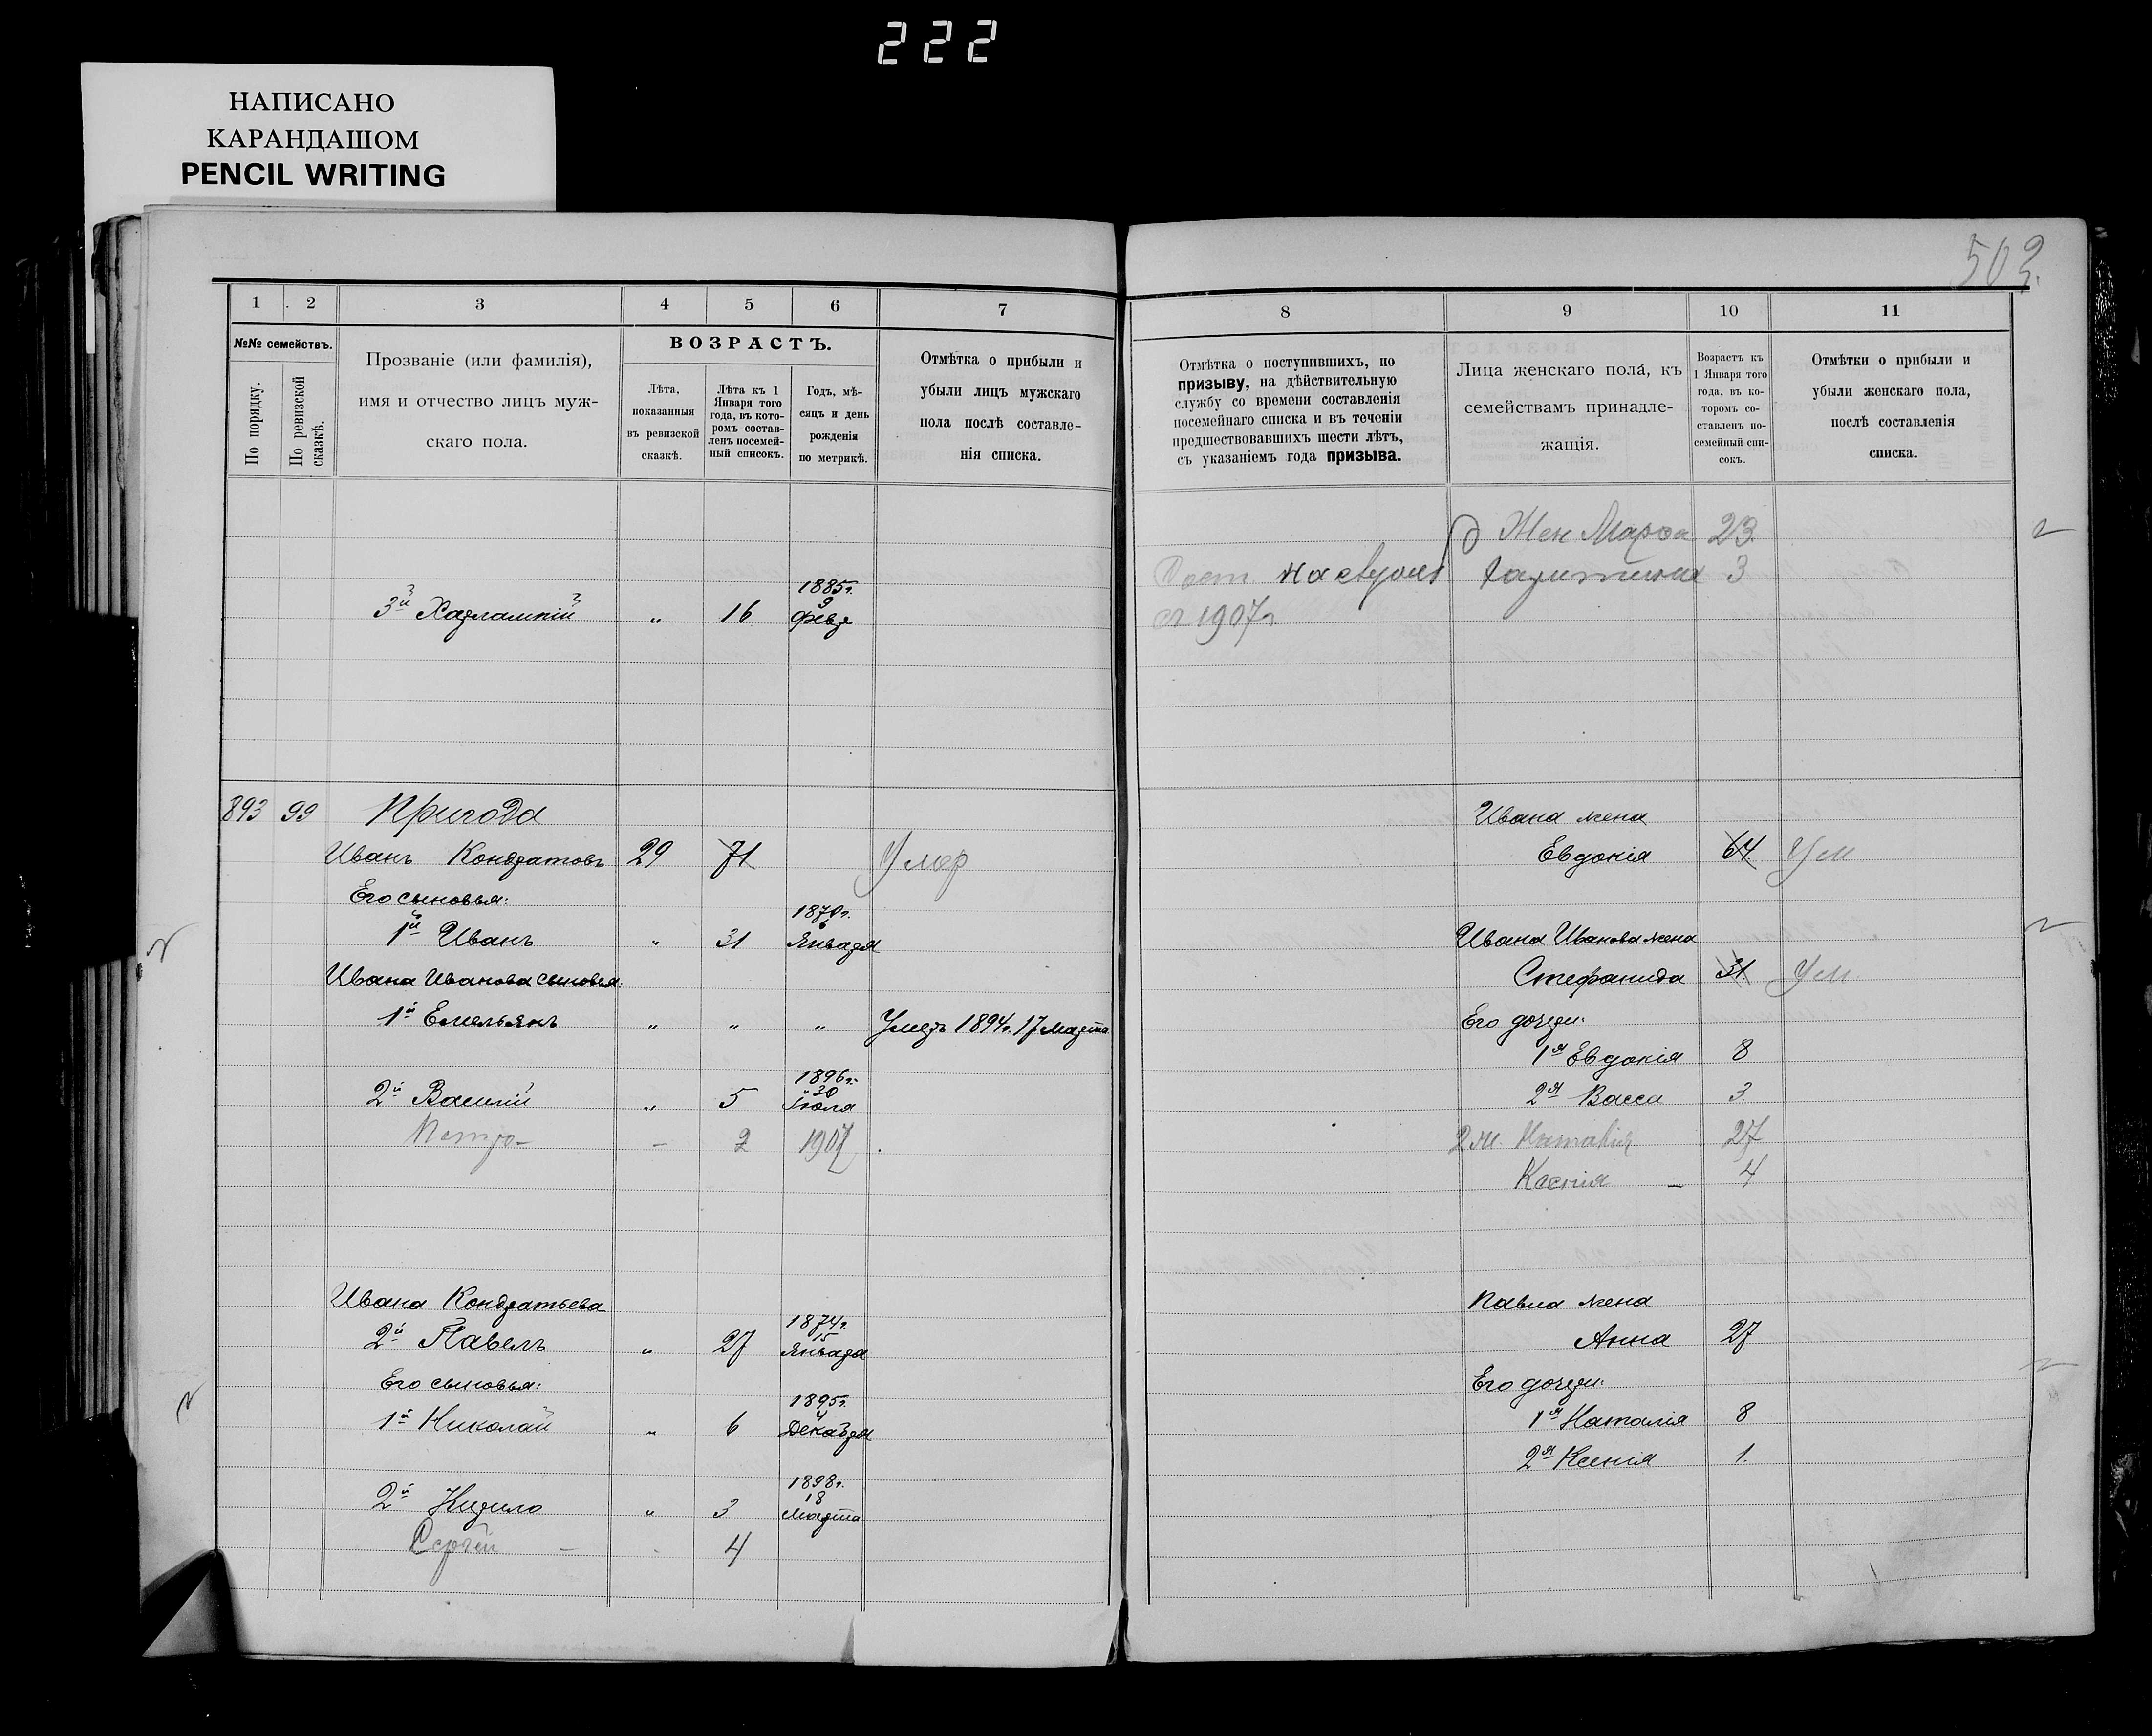 222
НАПИСАНО
КАРАНДАШОМ
PENCIL WRITING
503.
1 2 3 4 5 6 7
№№ семействъ.
По порядку.
По ревизской сказкѣ.
Прозваніе (или фамилія),
имя и отчество лицъ муж-
скаго пола.
ВОЗРАСТЪ.
Лѣта,
показанныя
въ ревизской
сказкѣ.
Лѣта къ 1
Января того
года, въ кото-
ромъ состав-
ленъ посемей-
ный списокъ.
Годъ, мѣ-
сяцъ и день
рожденія
по метрикѣ.
Отмѣтка о прибыли и
убыли лицъ мужскаго
пола послѣ составле-
нія списка.
1885г.
3й Харлампій „ 16 9 Февр
893 99 Пригода
Иванъ Кондратовъ 29 71 Умер
Его сыновья:
1й Иванъ „ 31 Января
Ивана Иванова сыновья:
1й Емельянъ „ „ „ Умеръ 1894г. 17 Марта
1896г.
2й Василій „ 5 30 Іюля
Петро – – 2 1907
Ивана Кондратьева
1874г.
2й Павелъ „ 27 15 Января
Его сыновья:
1895г.
1й Николай „ 6 4 Декабря
1898г.
2й Кирило „ 3 18 Марта
Сергей – 4
8 9 10 11
Отмѣтка о поступившихъ, по
призыву, на дѣйствительную
службу со времени составленія
посемейнаго списка и въ теченіи
предшествовавшихъ шести лѣтъ,
съ указаніемъ года призыва.
Лица женскаго пола, къ
семействамъ принадле-
жащія.
Возрастъ къ
1 Января того
года, въ ко-
торомъ со-
ставленъ по-
семейный спи-
сокъ.
Отмѣтки о прибыли и
убыли женскаго пола,
послѣ составленія
списка.
Жен Марфа 23
на 3
1907г
Ивана жена
Евдокія 64 Ум
Ивана Иванова жена
Стефанида 31 Ум
Его дочери:
1я Евдокія 8
2я Васса 3
2 ж. Наталія 27
Ксенія – 4
Павла жена
Анна 27
Его дочери:
1я Наталія 8
2я Ксенія 1.